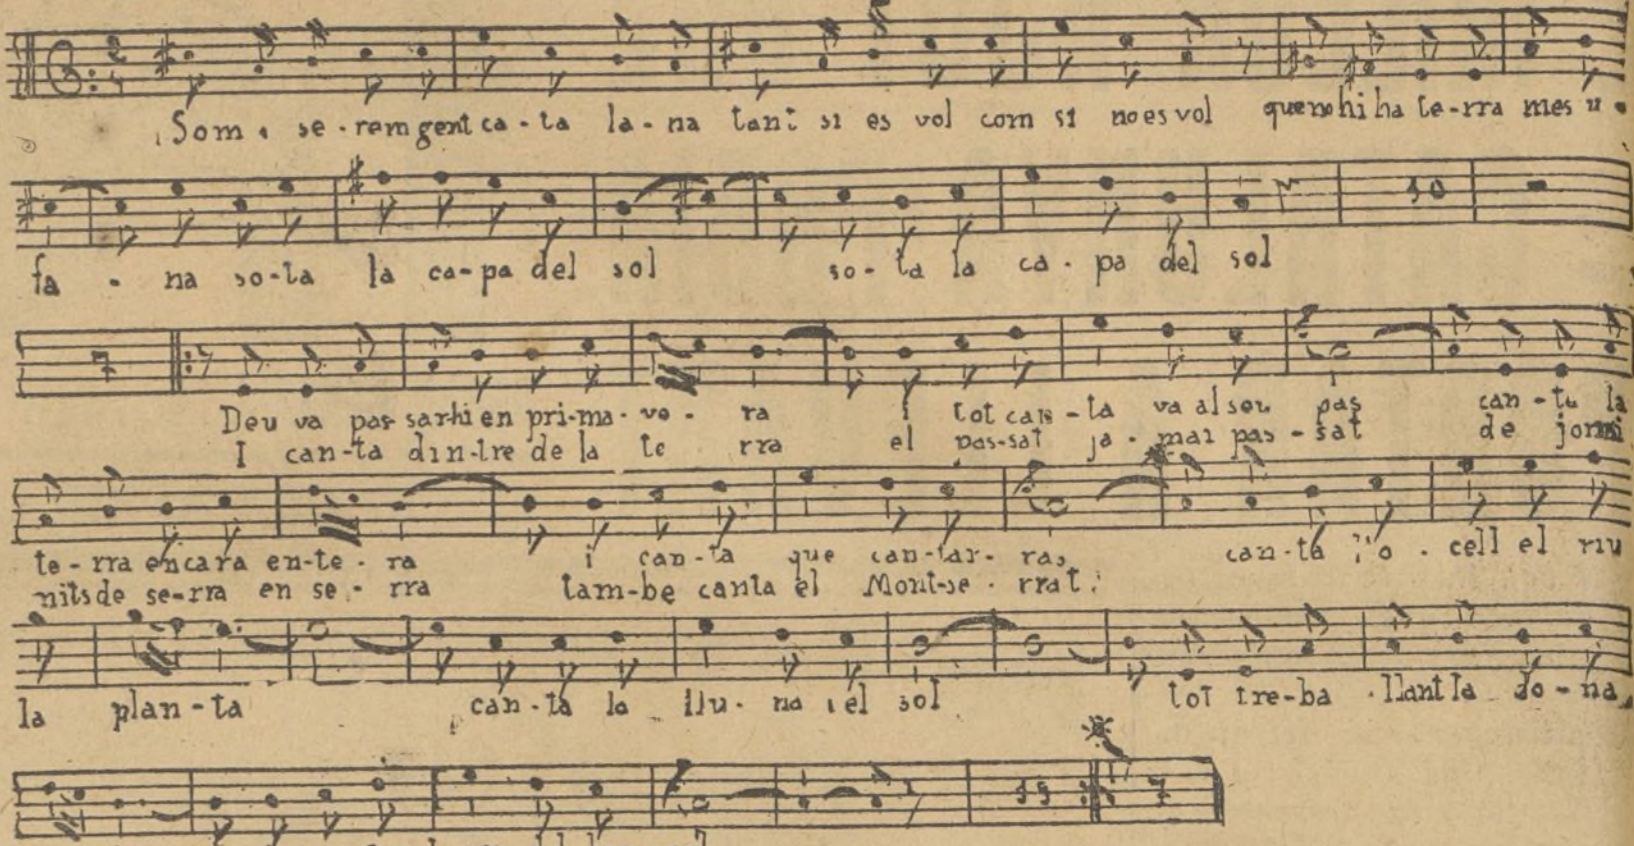 Som · se-rem gent ca-ta la-na tant si es vol com si no es vol que no hi ha te-rra mes u-
fa - na so-ta la ca-pa del sol so-ta la ca-pa del sol
Deu va pas-sar-hi en pri-ma-ve-ra i tot can-ta va al seu pas can-ta la
I can-ta din-tre de la te rra el pas-sat ja-mai pas-sat de jorn i
te-rra encara en-te-ra i can-ta que can-tar-ras can-ta l'o-cell el riu
nits de se-rra en se-rra tam-be canta el Mont-se-rrat
la plan-ta can-ta la llu-na i el sol tot tre-ba-llant la do-na